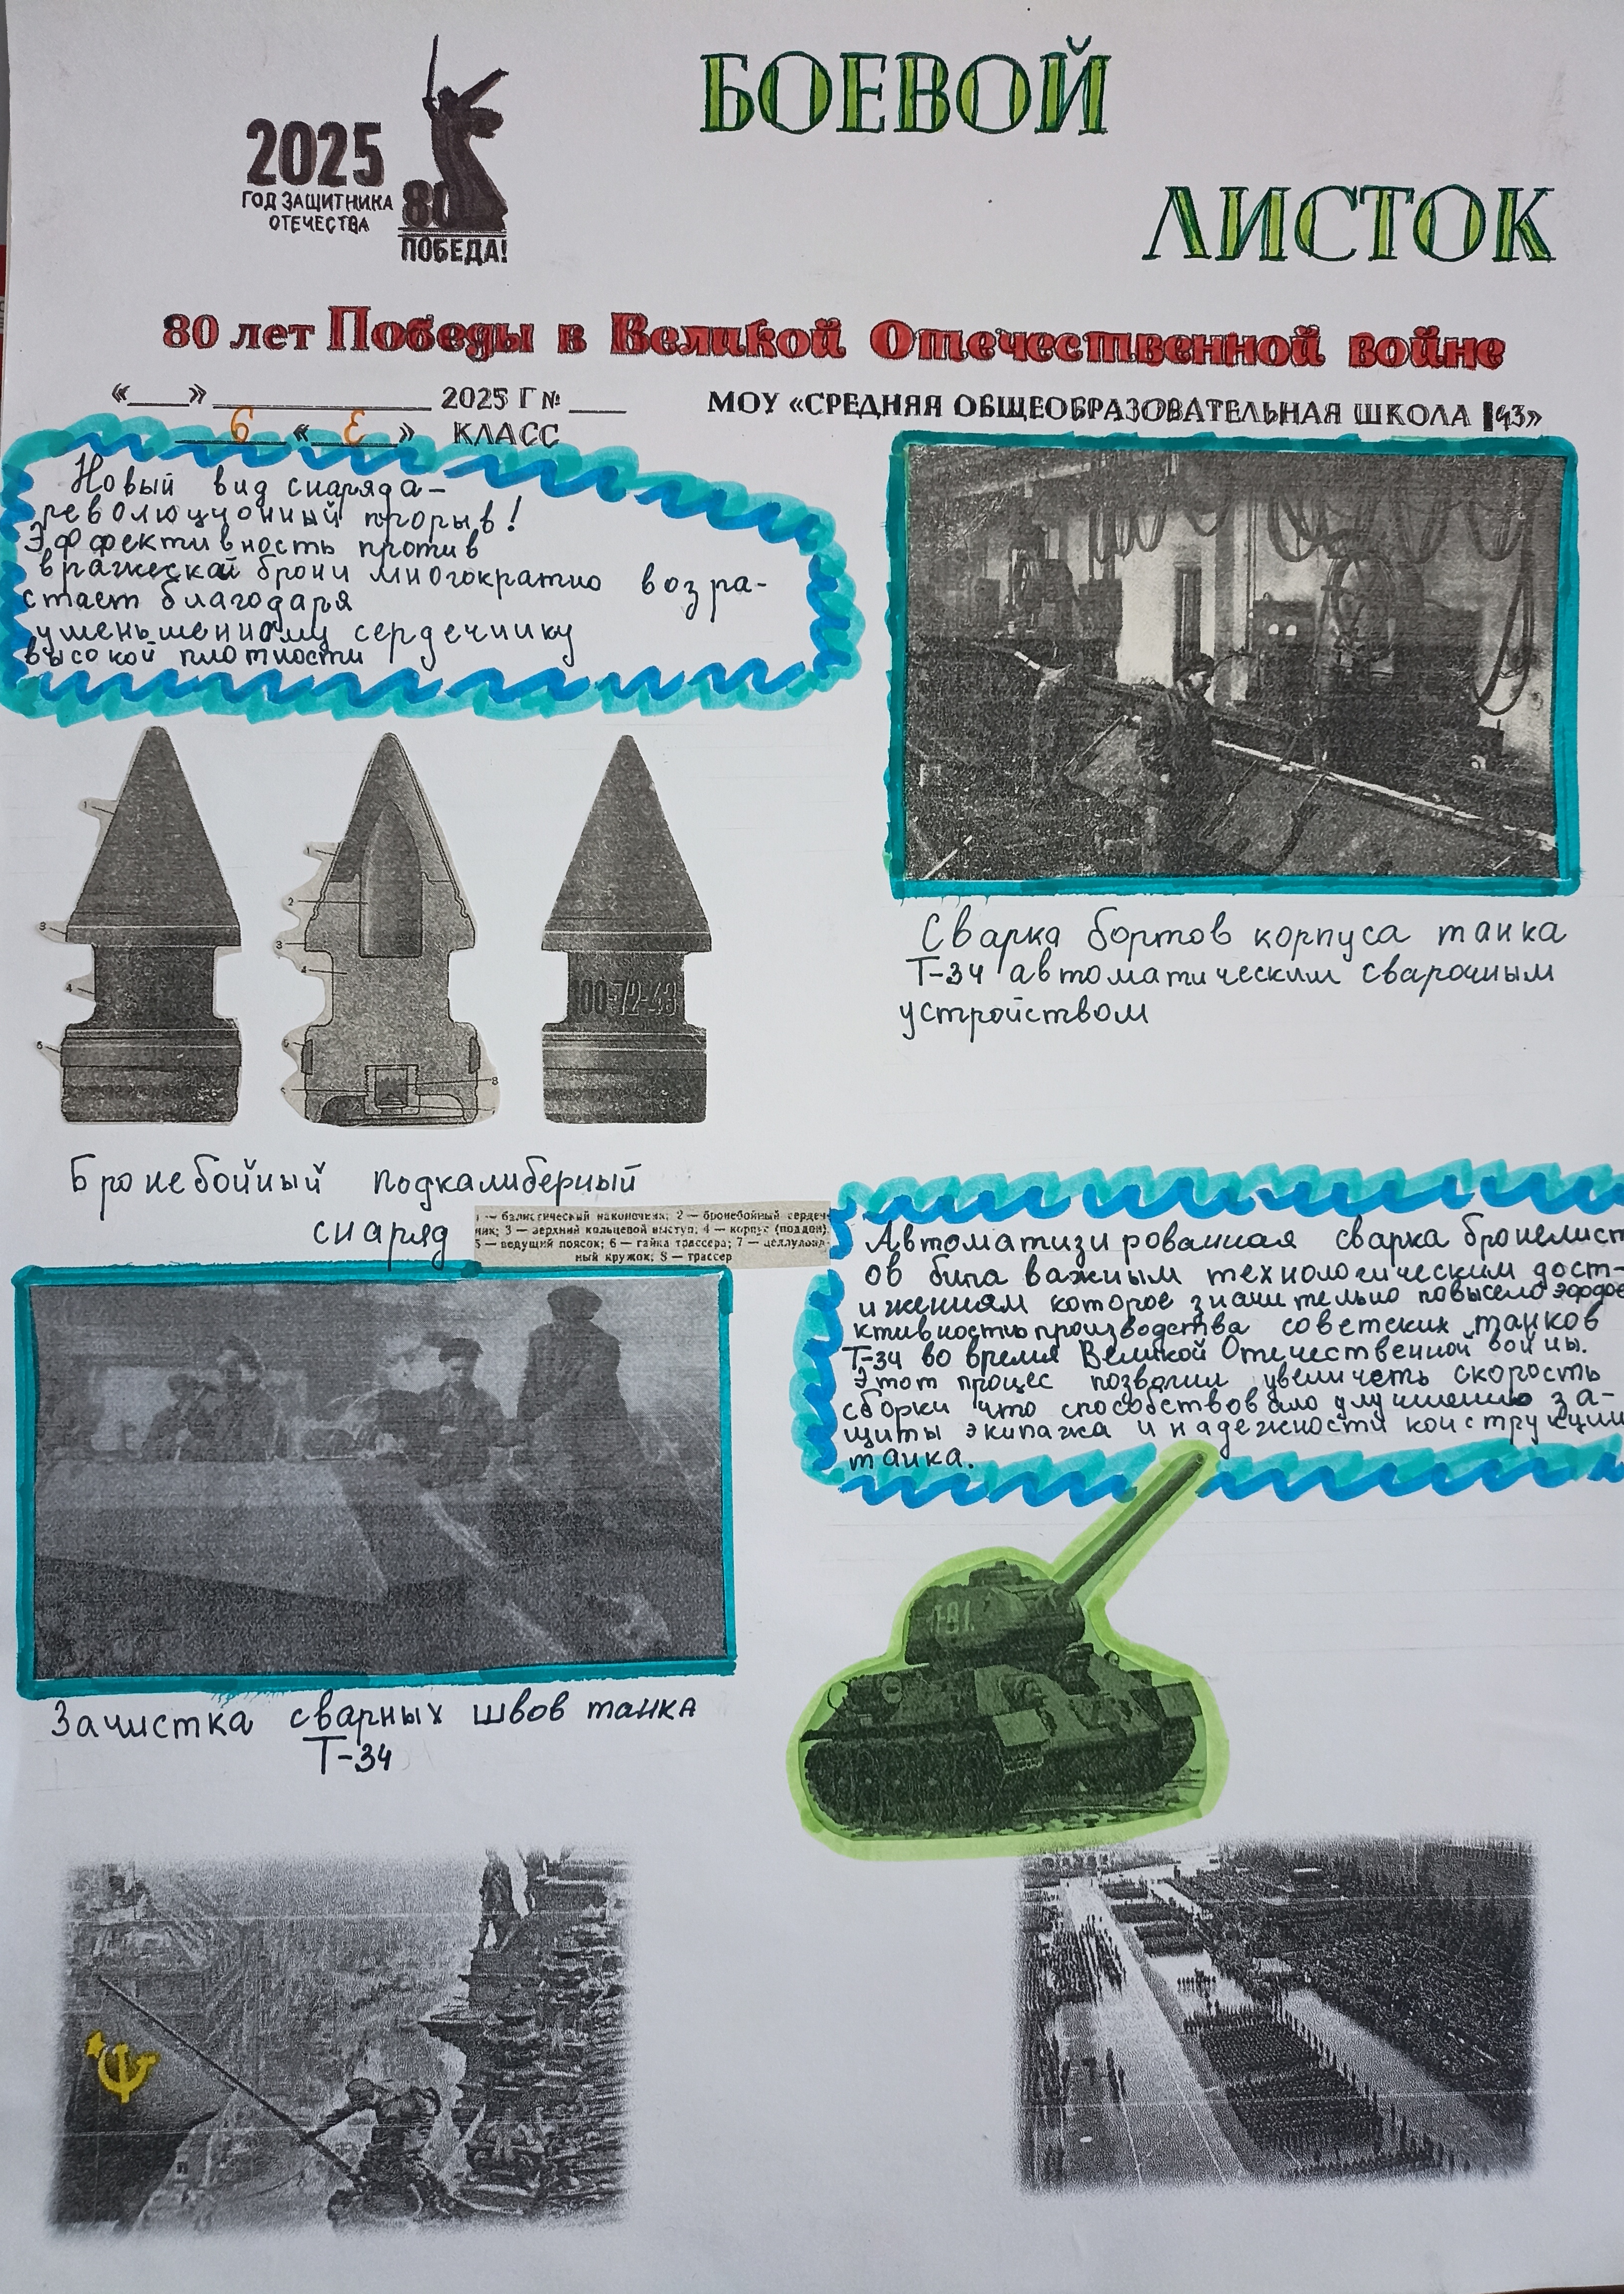 БОЕВОЙ
ЛИСТОК
2025
ГОД ЗАЩИТНИКА
ОТЕЧЕСТВА
80
ПОБЕДА!
80 лет Победы в Великой Отечественной войне
«___» ____________ 2025 Г № ___
МОУ «СРЕДНЯЯ ОБЩЕОБРАЗОВАТЕЛЬНАЯ ШКОЛА 43»
6 « Е » КЛАСС
Новый вид снаряда-
революционный прорыв!
Эффективность против
вражеской брони многократно возра-
стает благодаря
уменьшенному сердечнику
высокой плотности
1
3
4
5
1
2
3
4
8
00-72-43
Сварка бортов корпуса танка
Т-34 автоматическим сварочным
устройством
Бронебойный подкалиберный
снаряд
1 — балистический наконечник; 2 — бронебойный сердеч-
ник; 3 — верхний кольцевой выступ; 4 — корпус (поддон)
5 — ведущий поясок; 6 — гайка трассера; 7 — целлулоид-
ный кружок; 8 — трассер
Автоматизированная сварка бронелист
ов была важным технологическим дост-
ижениям которое значительно повысело эффе
ктивность производства советских танков
Т-34 во время Великой Отечественной войны.
Этот процес позволил увеличеть скорость
сборки что способствовало улучшению за-
щиты экипажа и надежности конструкции
танка.
Зачистка сварных швов танка
Т-34